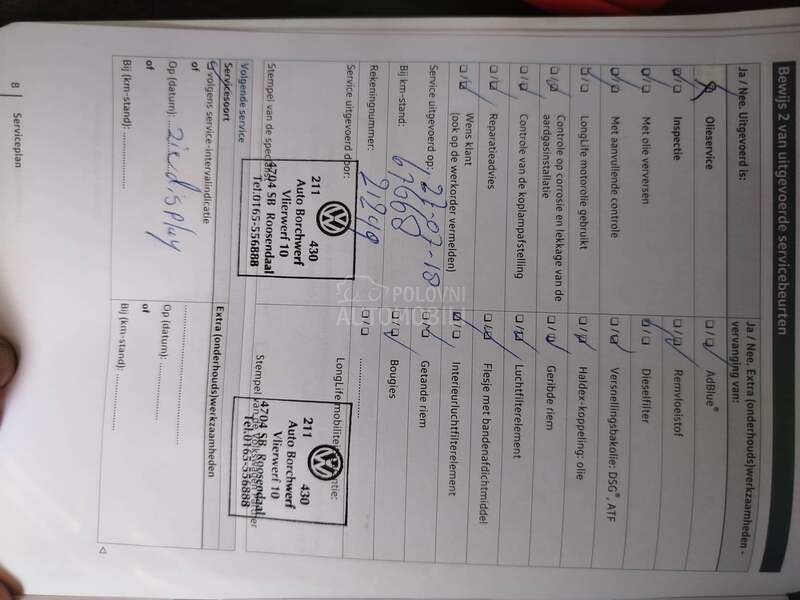 Bewijs 2 van uitgevoerde servicebeurten
Ja / Nee. Uitgevoerd is:
Olieservice
Inspectie
Met olie verversen
Met aanvullende controle
LongLife motorolie gebruikt
Controle op corrosie en lekkage van de
aardgasinstallatie
Controle van de koplampafstelling
Reparatieadvies
Wens klant
(ook op de werkorder vermelden)
Service uitgevoerd op: 27-07-18
Bij km-stand: 67668
Rekeningnummer: 21849
Service uitgevoerd door:
211 430
Auto Borchwerf
Vlierwerf 10
4704 SB Roosendaal
Tel.0165-556888
Stempel van de
Ja / Nee. Extra (onderhouds)werkzaamheden -
vervanging van:
AdBlue®
Remvloeistof
Dieselfilter
Versnellingsbakolie: DSG®, ATF
Haldex-koppeling: olie
Geribde riem
Luchtfilterelement
Flesje met bandenafdichtmiddel
Interieurluchtfilterelement
Getande riem
Bougies
LongLife
211 430
Auto Borchwerf
Vlierwerf 10
4704 SB Roosendaal
Tel.0165-556888
Stempel van de Volkswagen Partner
Volgende service
Servicesoort
volgens service-intervalindicatie
of
Op (datum): zie display
of
Bij (km-stand):
Extra (onderhouds)werkzaamheden
Op (datum):
of
Bij (km-stand):
8 Serviceplan
POLOVNI
AUTOMOBILI